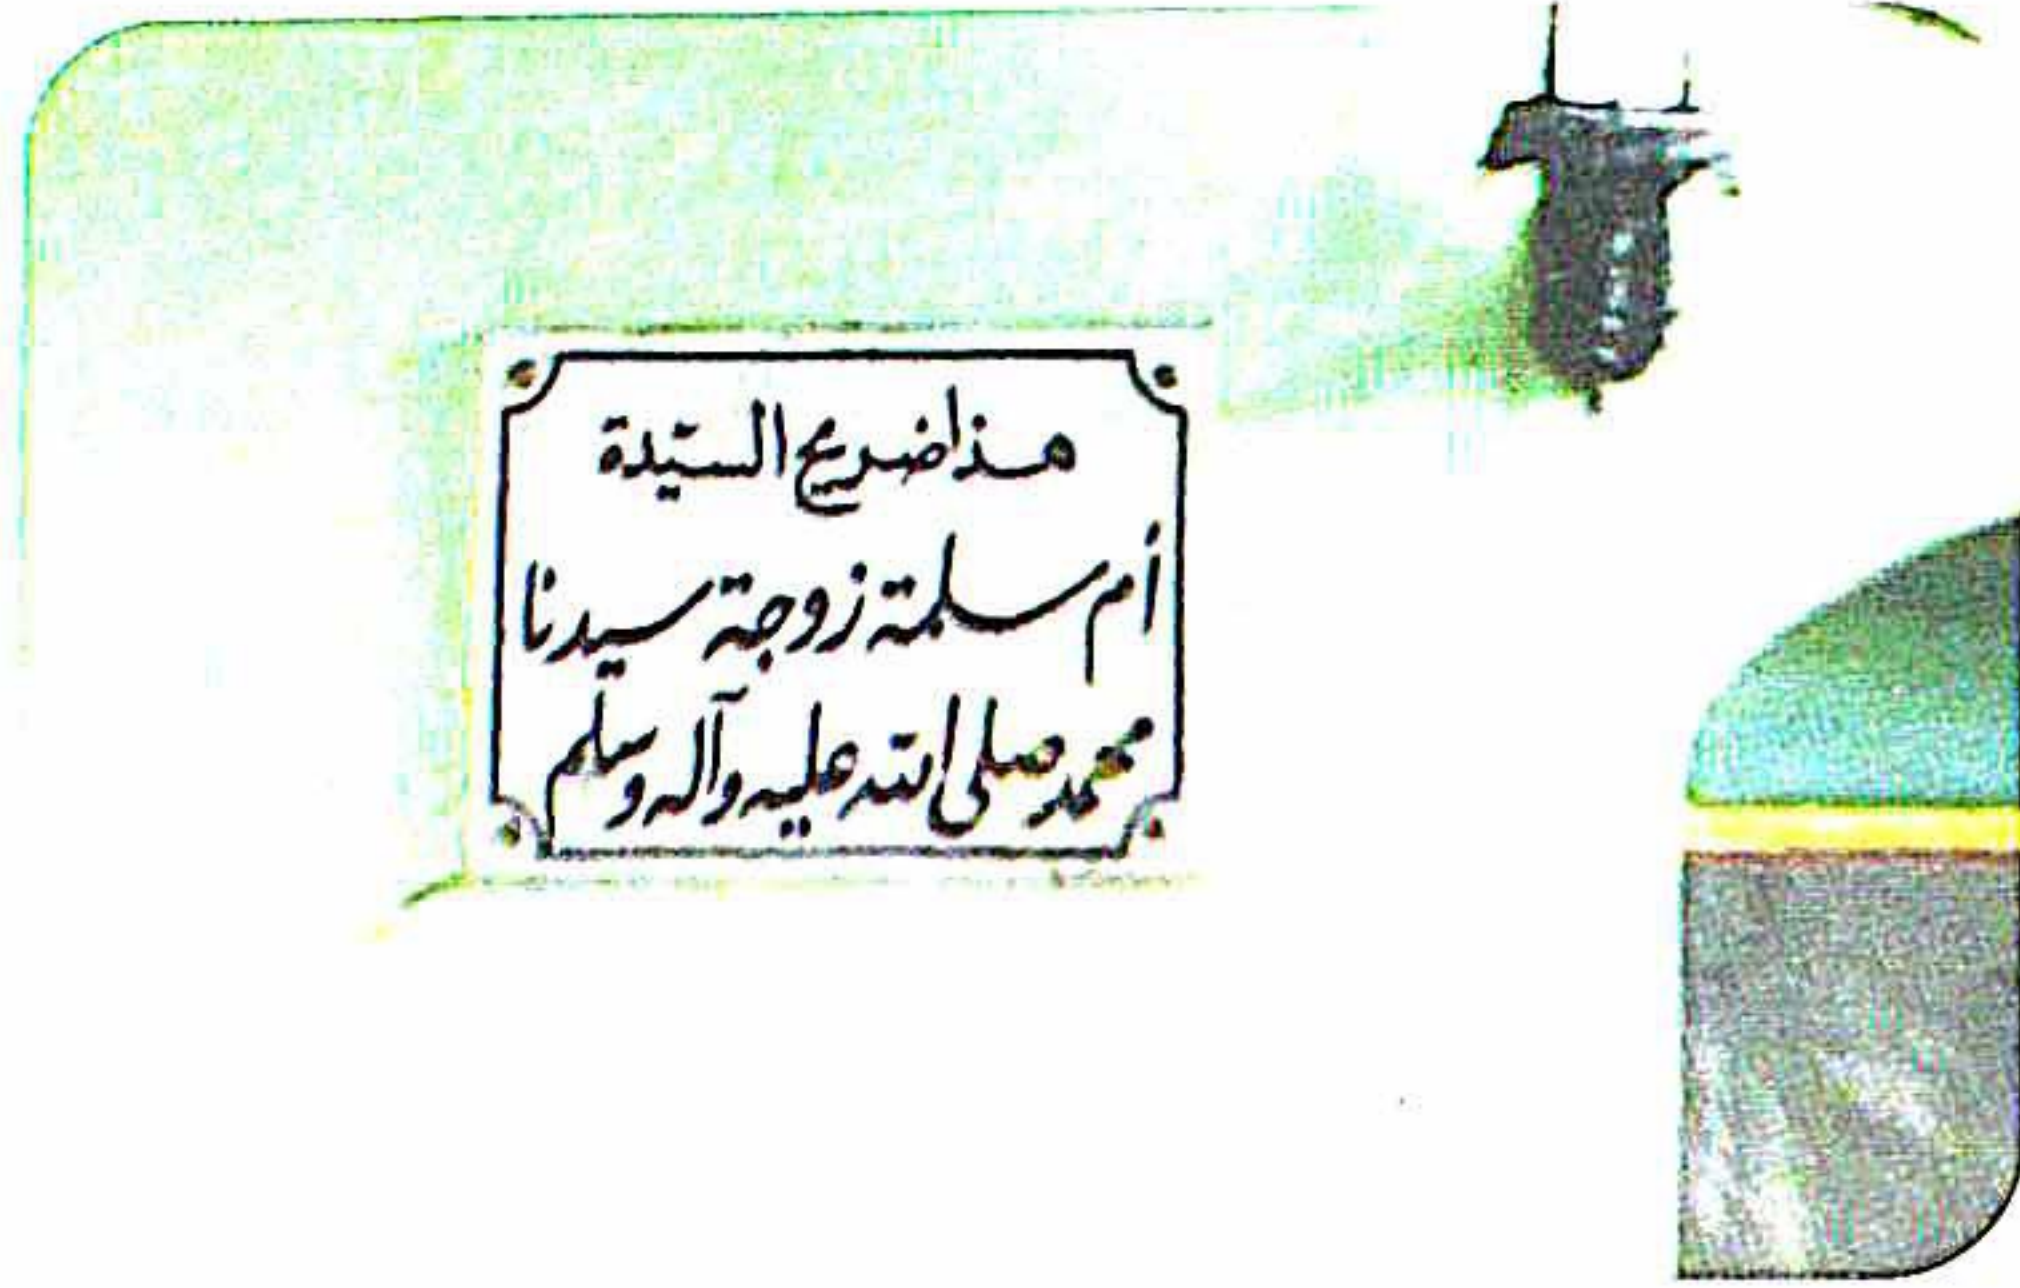 هذا ضريح السيّدة
أم سلمة زوجة سيدنا
محمد صلى الله عليه وآله وسلم